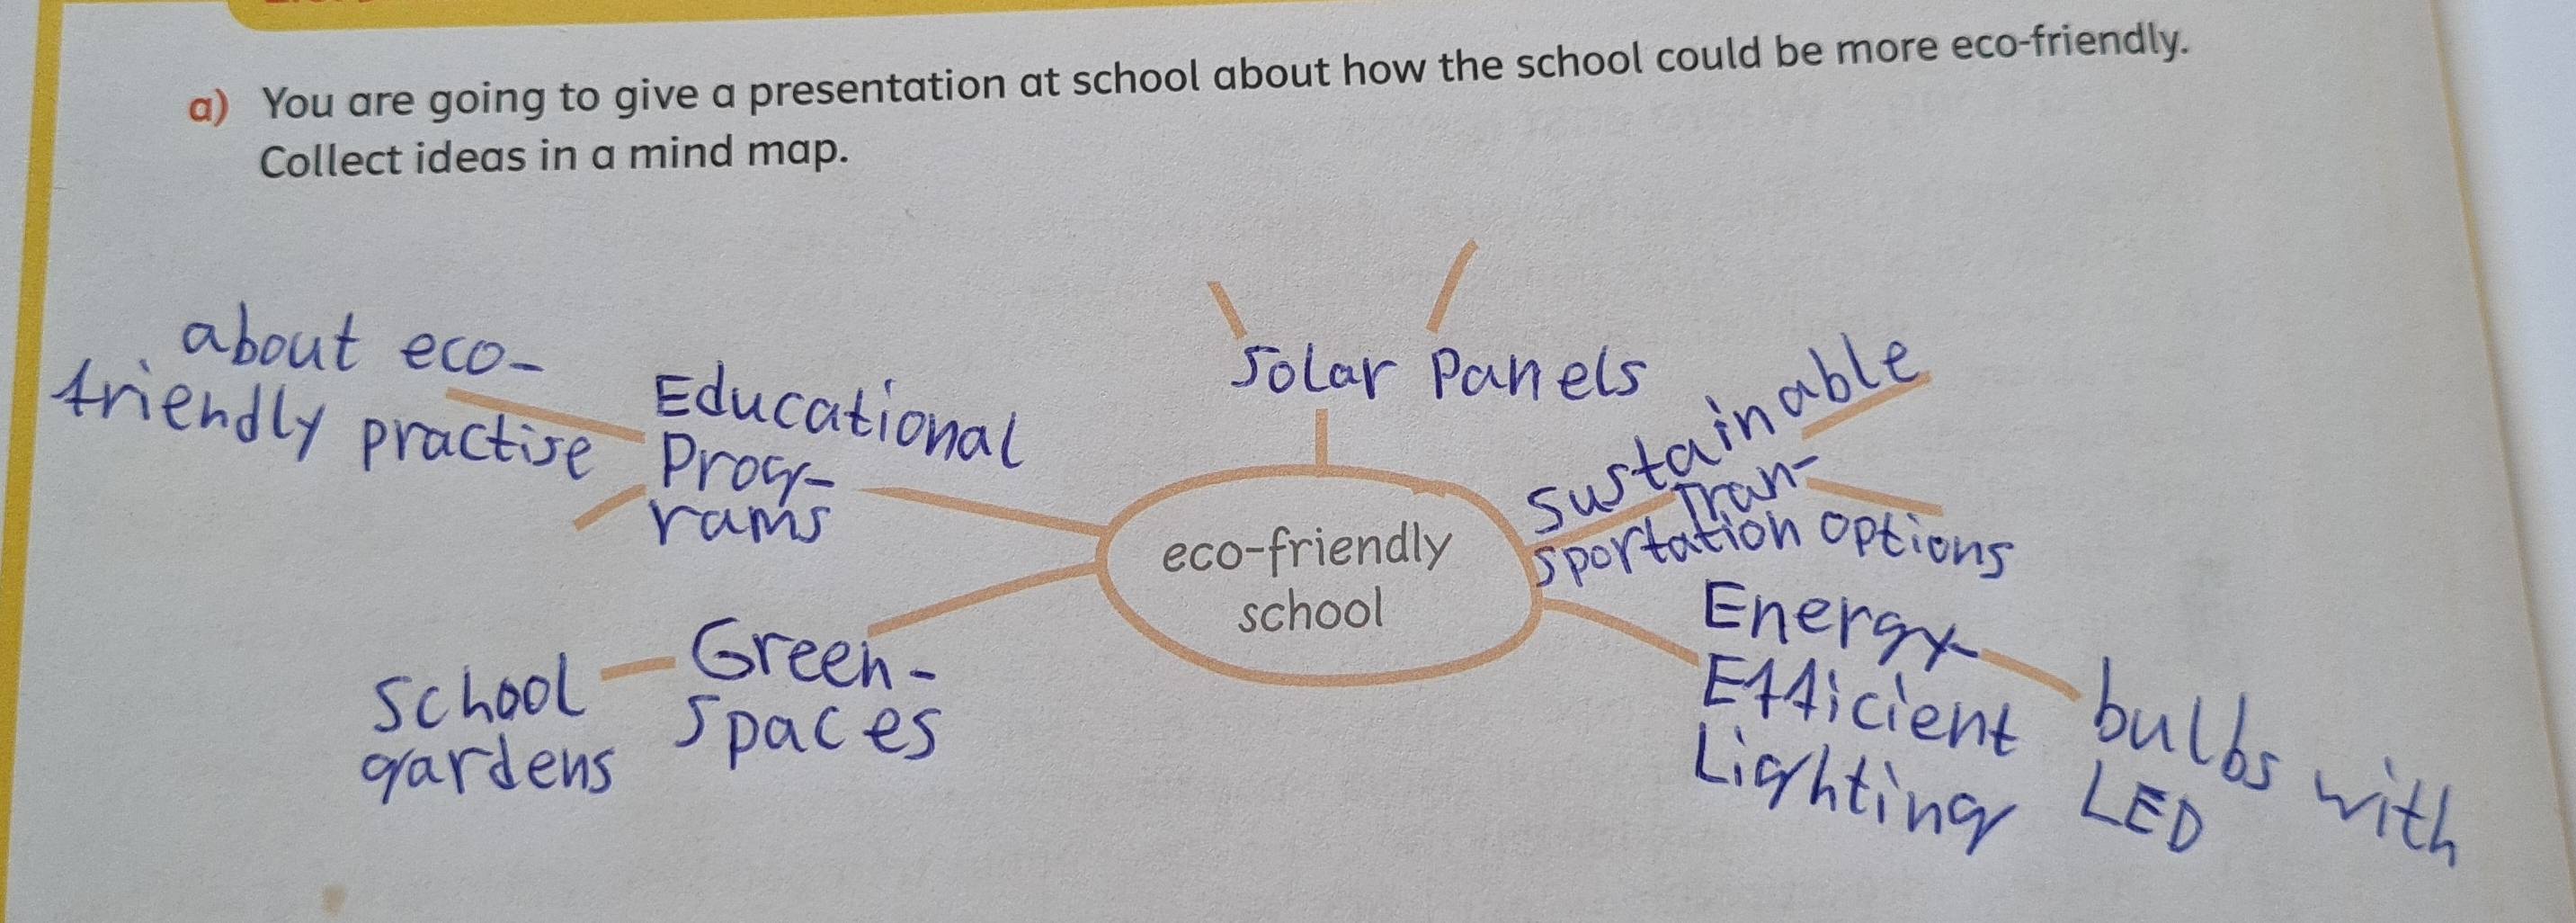 a) You are going to give a presentation at school about how the school could be more eco-friendly.
Collect ideas in a mind map.
about eco-
friendly practise
Educational
Prog-
rams
Solar Panels
sustainable
Tran-
sportation options
eco-friendly
school
School
gardens
Green-
Spaces
Energy
Efficient
Lighting
bulbs with
LED